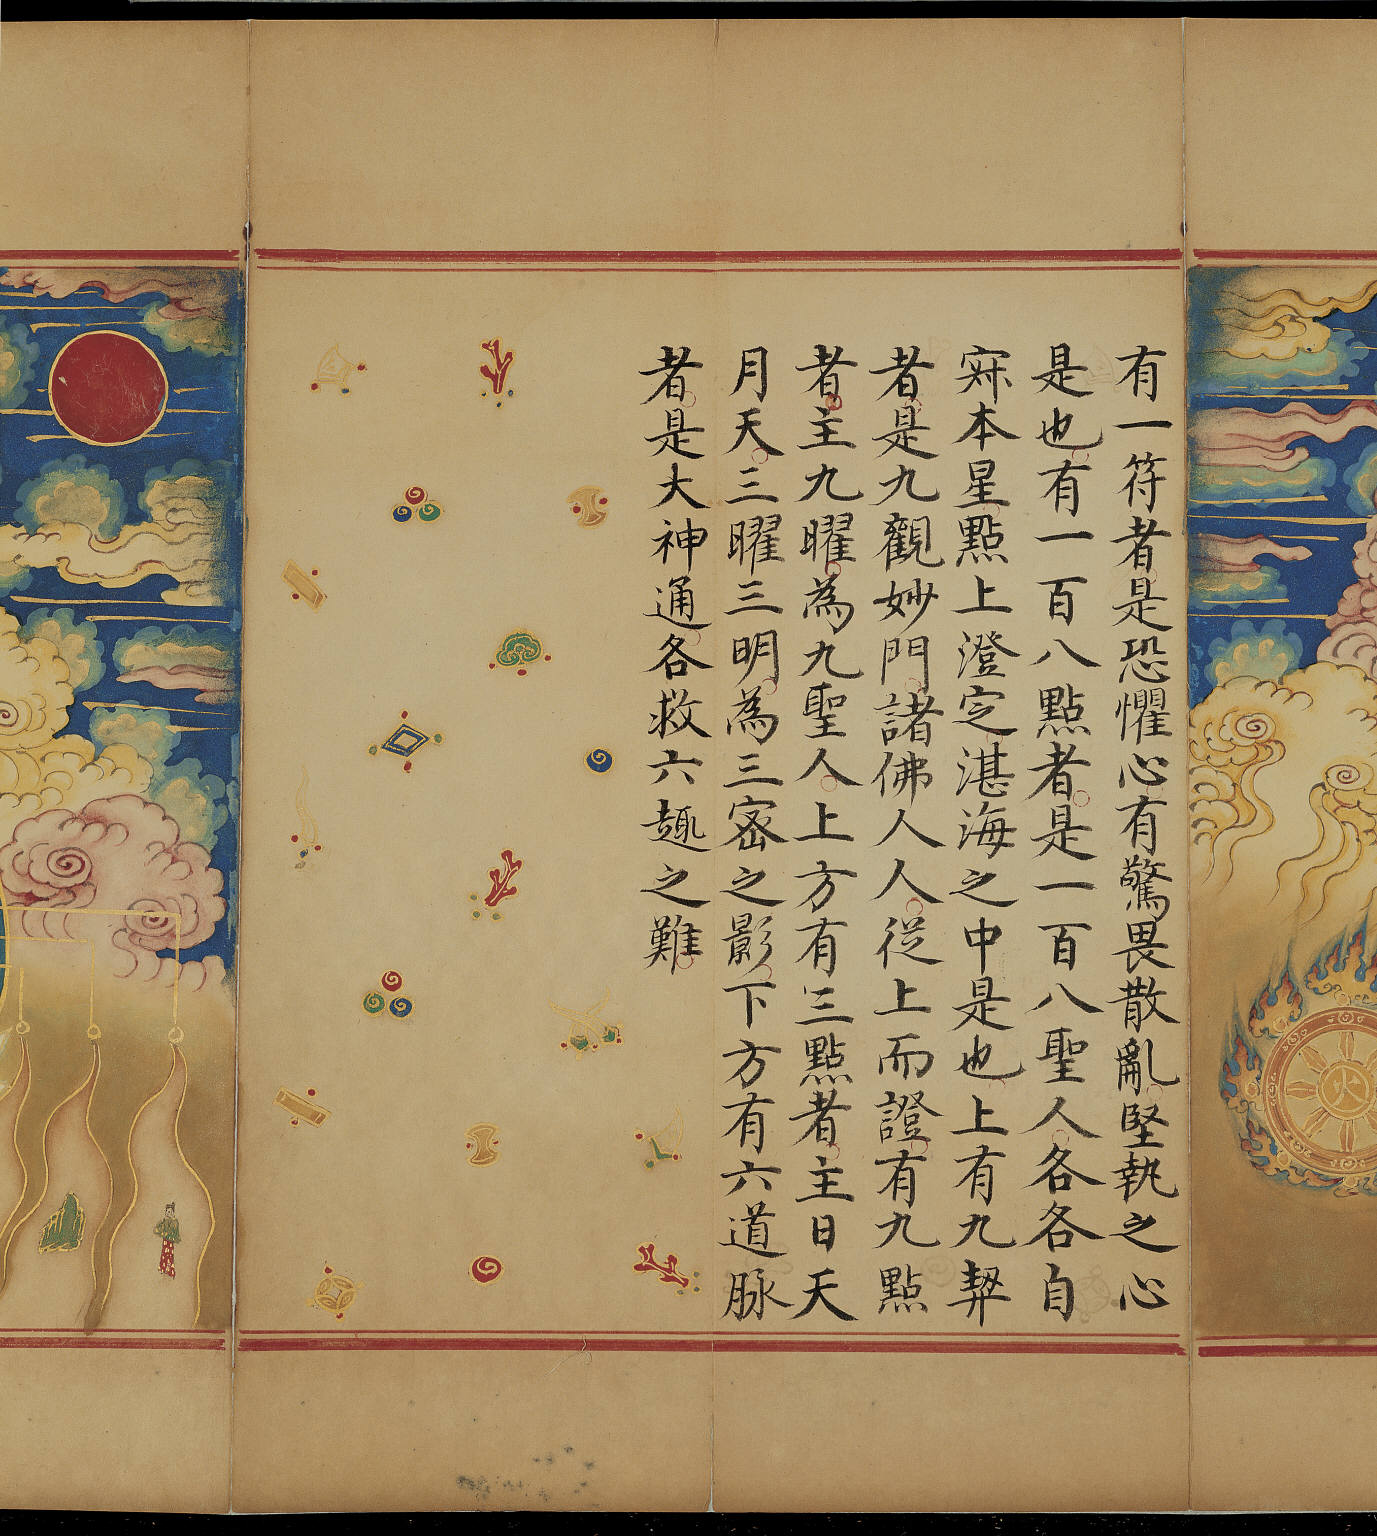 有一符者是恐懼心有驚畏散亂堅執之心
是也有一百八點者是一百八聖人各各自
寂本星點上澄定湛海之中是也上有九櫱
者是九觀妙門諸佛人人從上而證有九點
者主九曜為九聖人上方有三點者主日天
月天三曜三明為三密之影下方有六道脉
者是大神通各救六趣之難
火